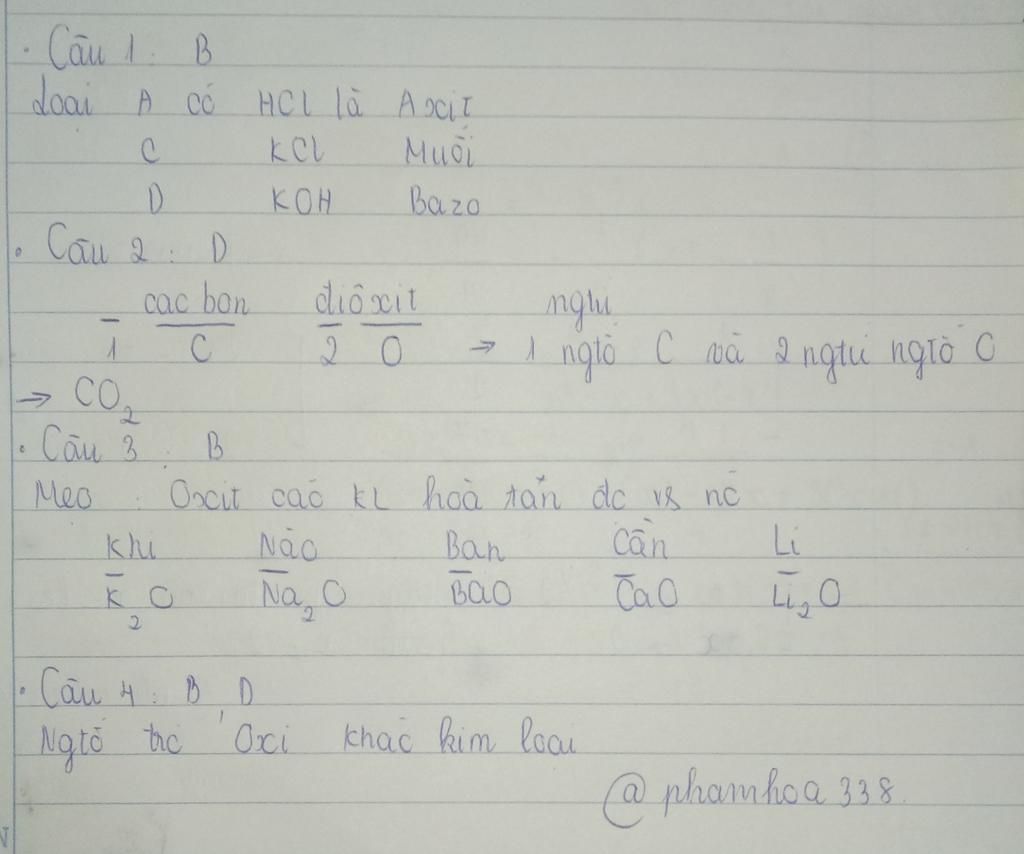 . Câu 1 : B
Loại A có HCl là Axit
C KCl Muối
D KOH Bazo
. Câu 2 : D
cac bon điôxit ngtu
1 C 2 O → 1 ngtố C và 2 ngtử ngtố O
→ CO₂
. Câu 3 : B
Mẹo : Oxit các KL hoà tan đc vs nc
Khi Nào Bạn Cần Li
K₂O Na₂O BaO CaO Li₂O
. Câu 4 : B, D
Ngtố trc Oxi khác kim loại
@phamhoa338.